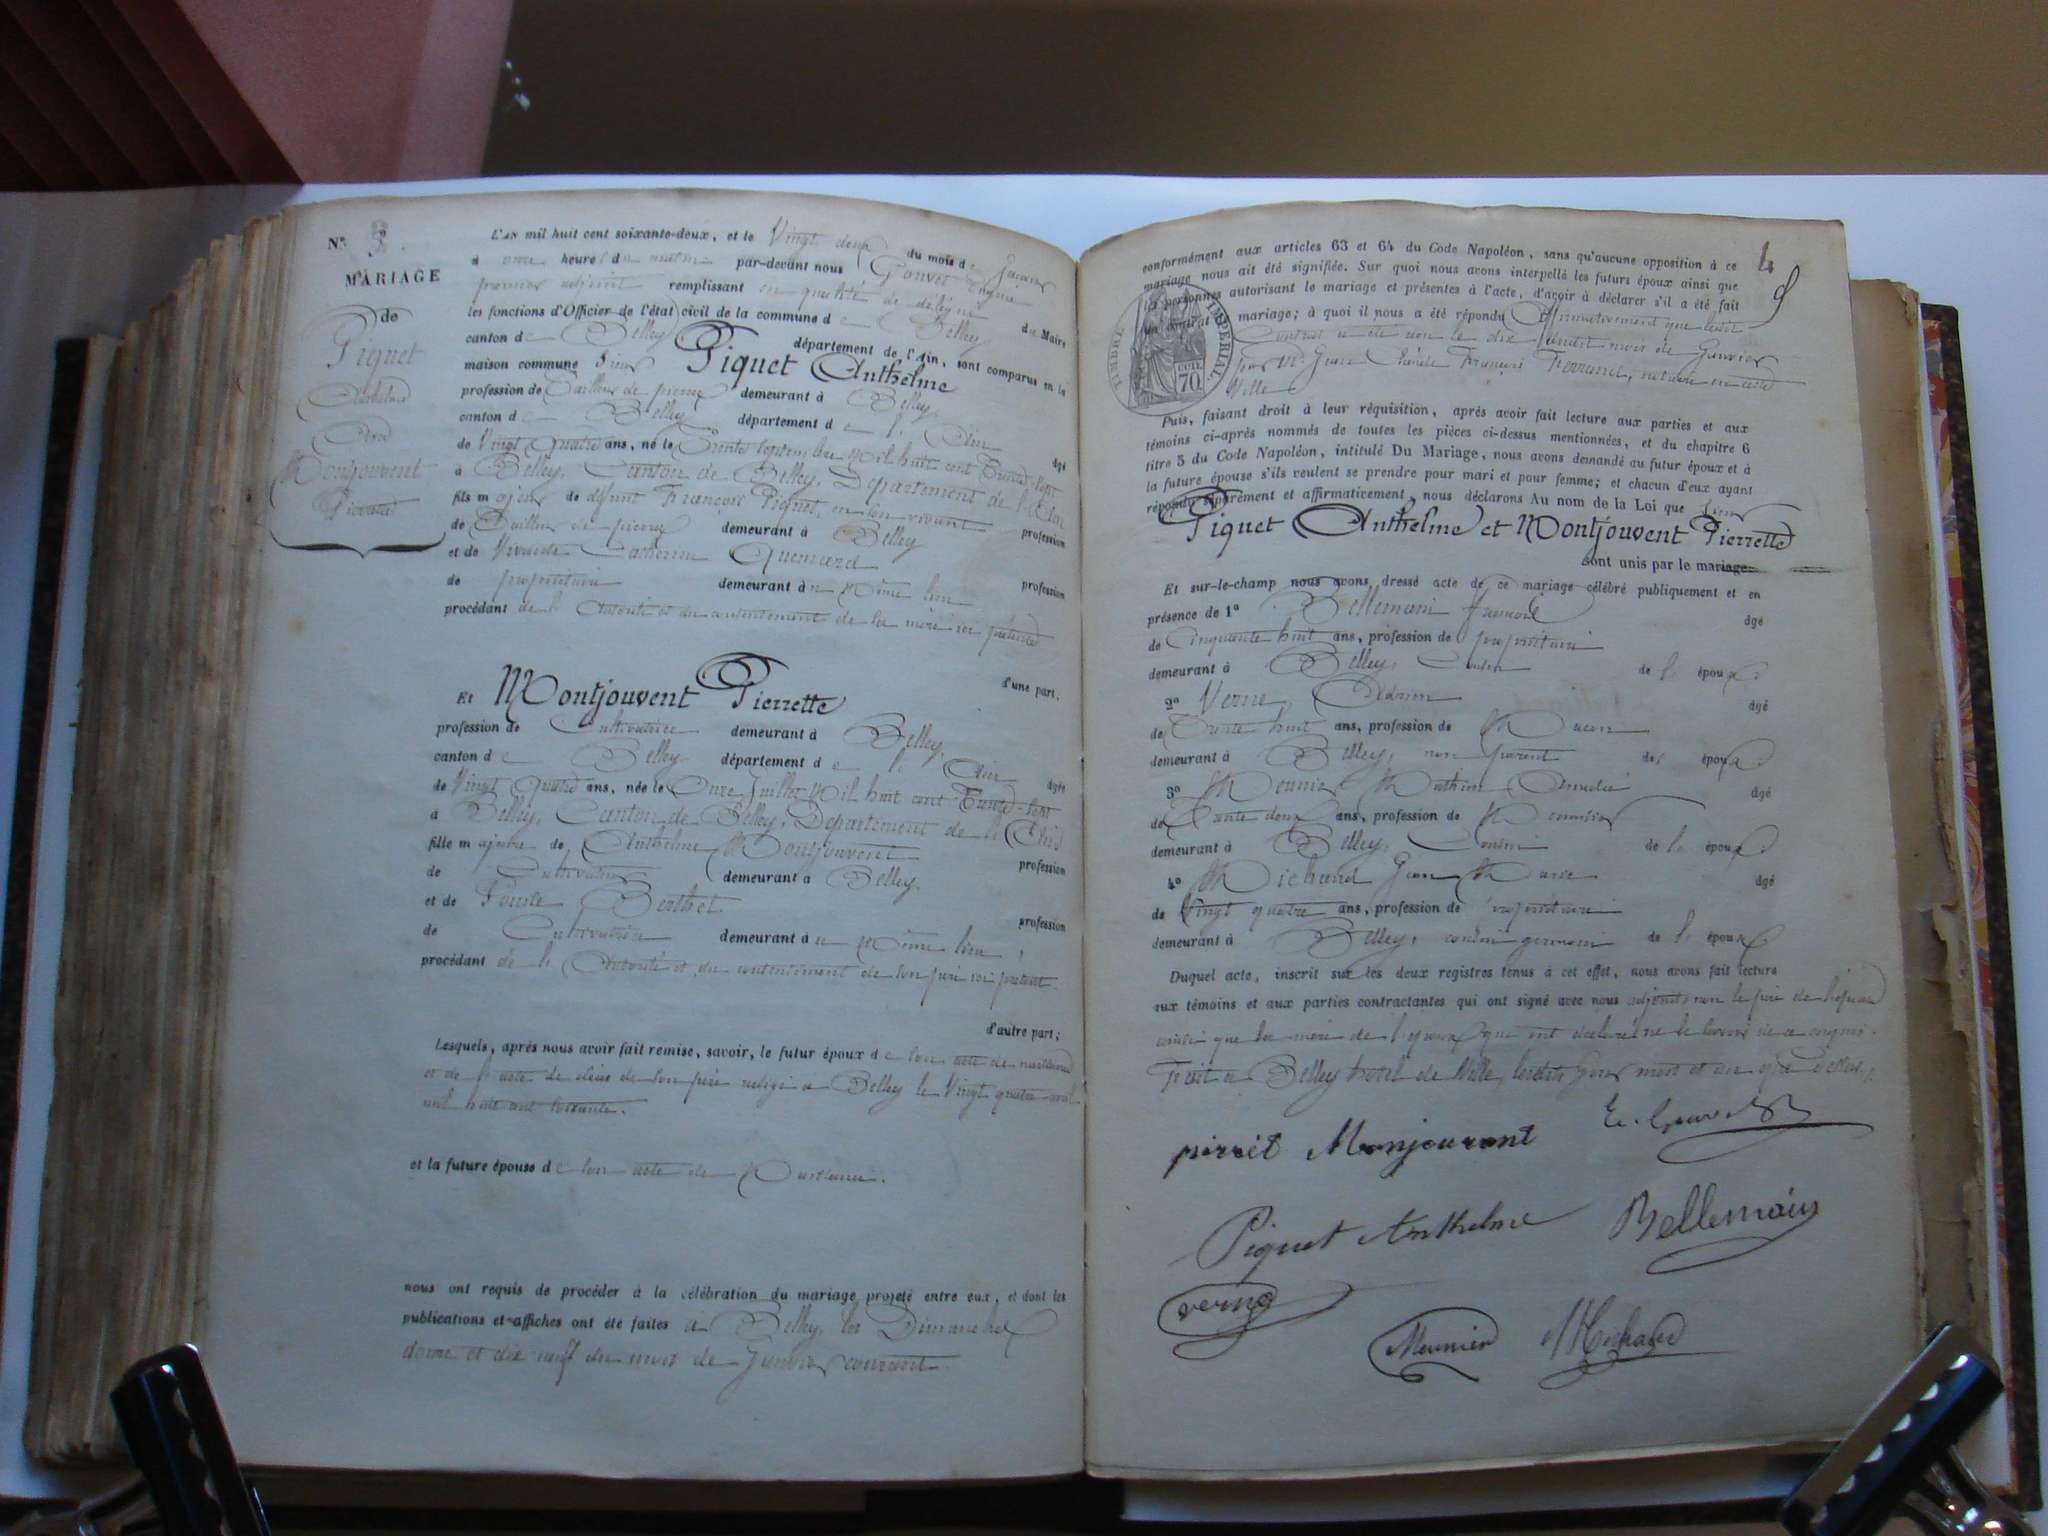 N° 3.
MARIAGE
de
Piquet
Anthelme
avec
Montjouvent
Pierrette
L'AN mil huit cent soixante-deux, et le Vingt deux du mois de Janvier
à onze heures du matin par-devant nous Gouvet
premier adjoint remplissant en qualité de délégué du Maire
les fonctions d'Officier de l'état civil de la commune de Belley
canton de Belley département de l'Ain, sont comparus en la
maison commune sieur Piquet Anthelme
profession de Tailleur de pierre demeurant à Belley,
canton de Belley département de l'Ain âgé
de Vingt Quatre ans, né le Trente septembre Mil huit cent Trente-sept
à Belley, Canton de Belley, Département de l'Ain
fils majeur de défunt François Piquet, en son vivant profession
de Tailleur de pierre demeurant à Belley
et de Vivante Catherine Quemard profession
de propriétaire demeurant au Même lieu
procédant de l'Autorité et du consentement de sa mère ici présente
d'une part.
Et Montjouvent Pierrette
profession de Cultivatrice demeurant à Belley,
canton de Belley département de l'Ain âgée
de Vingt Quatre ans, née le Onze Juillet Mil huit cent Trente-sept
à Belley, Canton de Belley, Département de l'Ain
fille majeure de Anthelme Montjouvent profession
de Cultivateur demeurant à Belley,
et de Berthet profession
de Cultivatrice demeurant au Même lieu,
procédant de l'Autorité et du consentement de son père ici présent.
d'autre part;
Lesquels, après nous avoir fait remise, savoir, le futur époux de son acte de naissance
et de l'acte de décès de son père rédigé à Belley le Vingt quatre avril
mil huit cent soixante.
et la future épouse de son acte de Naissance.
nous ont requis de procéder à la célébration du mariage projeté entre eux, et dont les
publications et affiches ont été faites à Belley, les Dimanches
douze et dix neuf du mois de Janvier courant.
4
conformément aux articles 63 et 64 du Code Napoléon, sans qu'aucune opposition à ce
mariage nous ait été signifiée. Sur quoi nous avons interpellé les futurs époux ainsi que
les personnes autorisant le mariage et présentes à l'acte, d'avoir à déclarer s'il a été fait
un contrat de mariage; à quoi il nous a été répondu Affirmativement que ledit
Contrat a été reçu le dix dudit mois de Janvier
par Me Jean François notaire en cette
Ville
TIMBRE IMPÉRIAL
CCIE.
70
Puis, faisant droit à leur réquisition, après avoir fait lecture aux parties et aux
témoins ci-après nommés de toutes les pièces ci-dessus mentionnées, et du chapitre 6
titre 5 du Code Napoléon, intitulé Du Mariage, nous avons demandé au futur époux et à
la future épouse s'ils veulent se prendre pour mari et pour femme; et chacun d'eux ayant
répondu séparément et affirmativement, nous déclarons Au nom de la Loi que sieur
Piquet Anthelme et Montjouvent Pierrette
sont unis par le mariage.
Et sur-le-champ nous avons dressé acte de ce mariage célébré publiquement et en
présence de 1° Bellemain âgé
de Cinquante huit ans, profession de propriétaire
demeurant à Belley, Cousin de l'époux
2° Verne, Adrien âgé
de Trente huit ans, profession de Maçon
demeurant à Belley, non parent des époux
3° Meunier Mathieu âgé
de Trente deux ans, profession de Menuisier
demeurant à Belley, Cousin de l'époux
4° Michaud Jean Marie âgé
de Vingt quatre ans, profession de propriétaire
demeurant à Belley, cousin germain de l'époux
Duquel acte, inscrit sur les deux registres tenus à cet effet, nous avons fait lecture
aux témoins et aux parties contractantes qui ont signé avec nous adjoint, non le père de l'épouse
ainsi que la mère de l'époux que ont déclaré ne le savoir de ce enquis.
Fait à Belley hôtel de Ville, lesdits jour mois et an que dessus.
pierret Monjouvent
Piquet Anthelme Bellemain
verne
Meunier Michaud